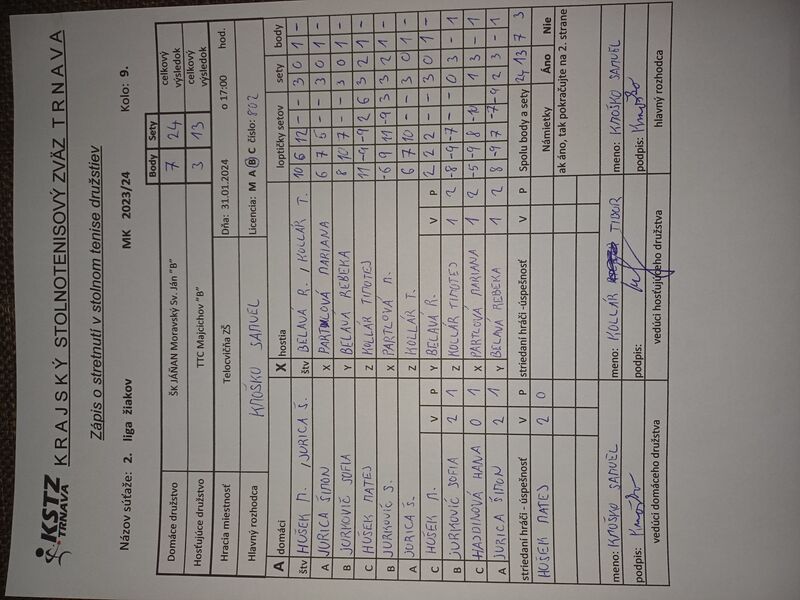 KSTZ TRNAVA KRAJSKÝ STOLNOTENISOVÝ ZVÄZ TRNAVA
Zápis o stretnutí v stolnom tenise družstiev
Názov súťaže: 2. liga žiakov MK 2023/24 Kolo: 9.
Body Sety celkový výsledok
Domáce družstvo ŠK JÁŇAN Moravský Sv. Ján "B" 7 24 celkový výsledok
Hosťujúce družstvo TTC Majcichov "B" 3 13
Hracia miestnosť Telocvičňa ZŠ Dňa: 31.01.2024 o 17:00 hod.
Hlavný rozhodca KMOŠKO SAMUEL Licencia: M A B C číslo: 802
A domáci X hostia loptičky setov sety body
štv HUŠEK M. / JURICA Š. štv BELAVÁ R. / KOLLÁR T. 10 6 12 - - 3 0 1 -
A JURICA ŠIMON X PARTLOVÁ MARIANA 6 7 5 - - 3 0 1 -
B JURKOVIČ SOFIA Y BELAVÁ REBEKA 8 10 7 - - 3 0 1 -
C HUŠEK MATEJ Z KOLLÁR TIMOTEJ 11 -9 -9 2 6 3 2 1 -
B JURKOVIČ S. X PARTLOVÁ M. -6 9 11 -9 3 3 2 1 -
A JURICA Š. Z KOLLÁR T. 6 7 10 - - 3 0 1 -
C HUŠEK M. V P Y BELAVÁ R. V P 2 2 2 - - 3 0 1 -
B JURKOVIČ SOFIA 2 1 Z KOLLÁR TIMOTEJ 1 2 -8 -9 -7 - - 0 3 - 1
C HAJDINOVÁ HANA 0 1 X PARTLOVÁ MARIANA 1 2 -5 -9 8 -10 1 3 - 1
A JURICA ŠIMON 2 1 Y BELAVÁ REBEKA 1 2 8 -9 7 -7 -9 2 3 - 1
striedaní hráči - úspešnosť V P striedaní hráči -úspešnosť V P Spolu body a sety 24 13 7 3
HUŠEK MATEJ 2 0 Námietky Áno Nie
ak áno, tak pokračujte na 2. strane
meno: KMOŠKO SAMUEL meno: KOLLÁR TIBOR meno: KMOŠKO SAMUEL
podpis: podpis: podpis:
vedúci domáceho družstva vedúci hosťujúceho družstva hlavný rozhodca